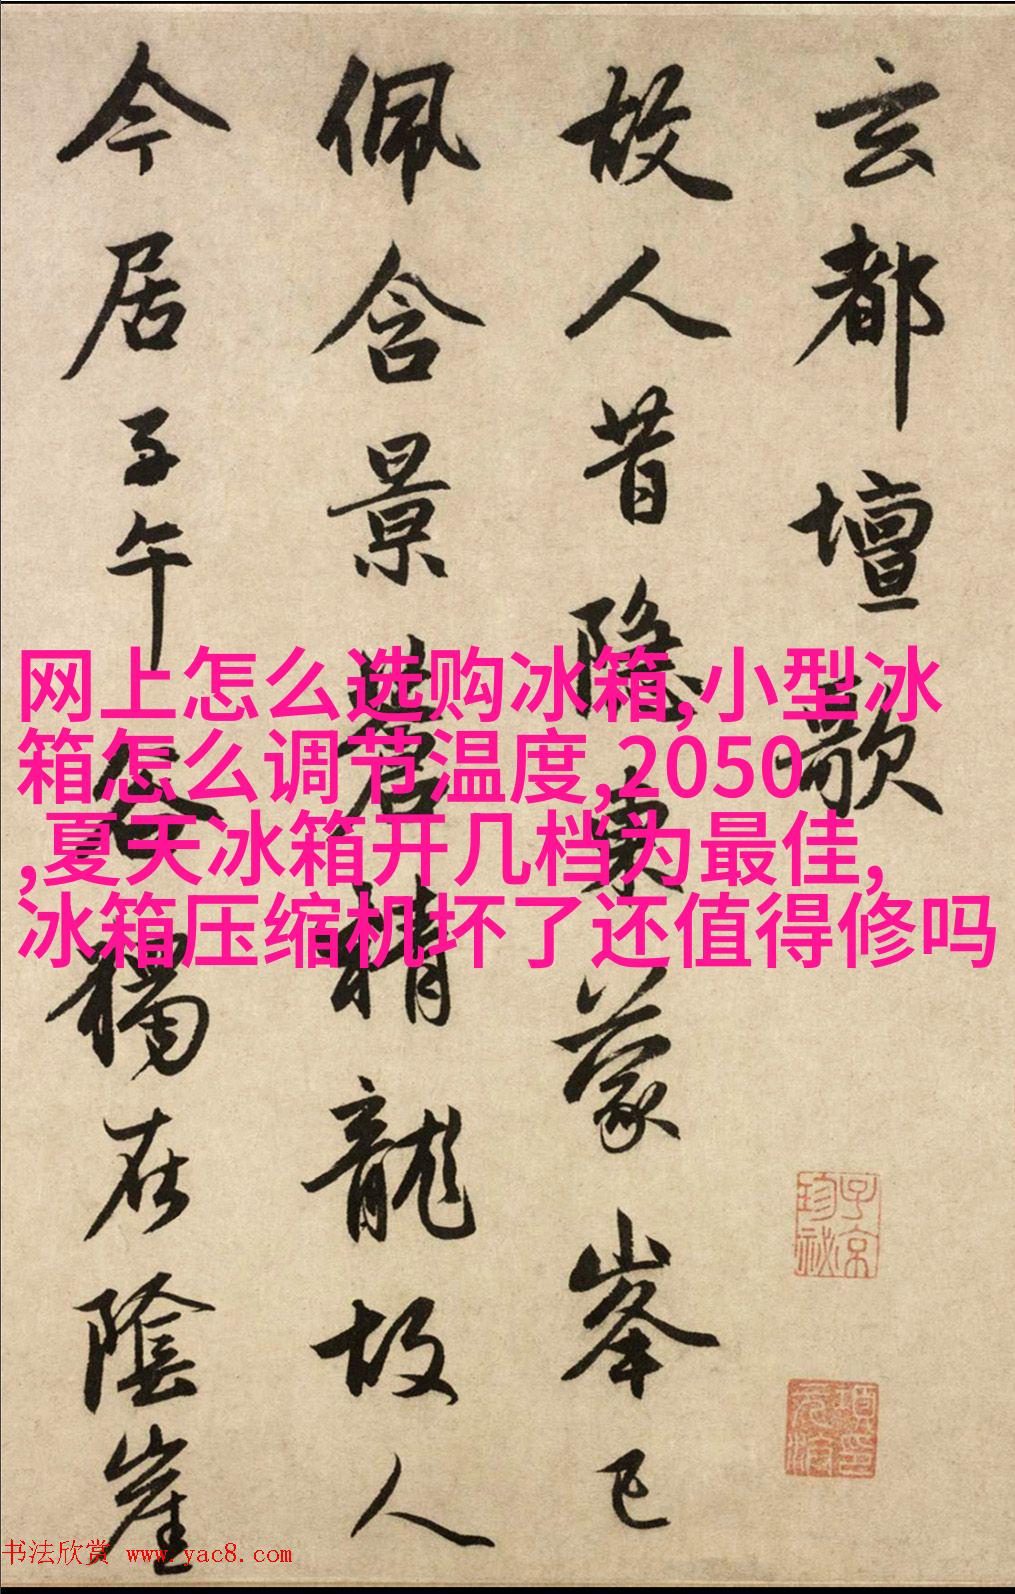 玄都壇歌
故人昔隱東蒙峯已
佩含景蒼精龍故人
今居子午谷獨在陰崖
网上怎么选购冰箱,小型冰
箱怎么调节温度,2050
,夏天冰箱开几档为最佳,
冰箱压缩机坏了还值得修吗
子京
珍祕
书法欣赏 www.yac8.com